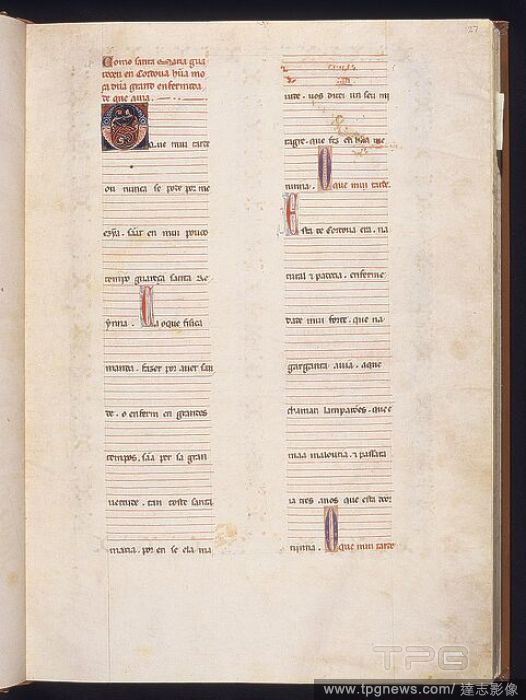 27
Como santa Maria gua
receu en Cordova hũa mo
ça dũa grand enfermida
de que avia.
O que mui tarde
ou nunca se pode per me
ezỹa . sãar en mui pouco
tempo guareça santa Re
ỹnna . Ca o que fisica
manda . fazer por aver san
de . o enferm en grandes
tempos . sãa per sa gran
uertude . tan toste santa
maria . por en se ela ma
ude . uos direi un seu mi
ragre . que fez en hũa me
ninna . O que mui tarde.
Esta de Cordoua era . na
tural & padecia . enferme
dade mui forte . que na
garganta auia . aque
chaman lamparões . que e
maa malautia . & passara
ia tres . anos que esta door
tijnna . O que mui tarde
TPG
www.tpgnews.com/達志影像